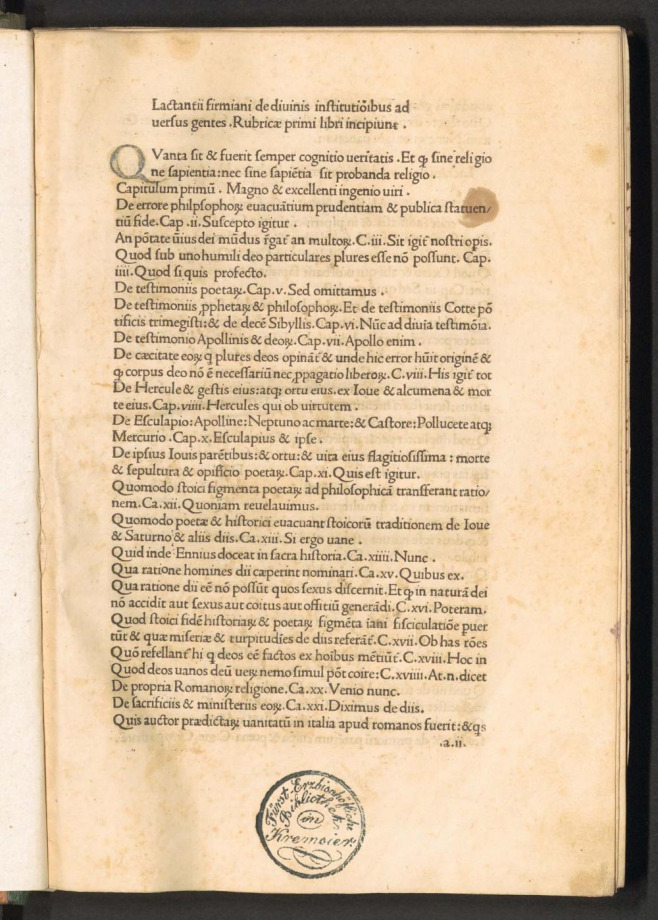 Lactantii firmiani de diuinis institutiōibus ad
uersus gentes .Rubricæ primi libri incipiunt .
QVanta sit & fuerit semper cognitio ueritatis .Et ꝙ sine religio
ne sapientia:nec sine sapiētia sit probanda religio .
Capitulum primū . Magno & excellenti ingenio uiri .
De errore philosophoꝝ euacuātium prudentiam & publica statuen/
tiū fide.Cap .ii.Suscepto igitur .
An pōtate ūius dei mūdus r̄gat̄ an multoꝝ.C.iii.Sit igit̄ nostri opis.
Quod sub uno humili deo particulares plures esse nō possunt. Cap.
iiii.Quod si quis profecto.
De testimoniis poetaꝝ.Cap.v.Sed omittamus .
De testimoniis ꝓphetaꝝ & philosophoꝝ.Et de testimoniis Cotte pō
tificis trimegisti:& de decē Sibyllis.Cap.vi.Nūc ad diuīa testimōia.
De testimonio Apollinis & deoꝝ.Cap.vii.Apollo enim .
De cæcitate eoꝝ q plures deos opināt̄ & unde hic error hūit originē &
ꝙ corpus deo nō ē necessariū nec ꝓpagatio liberoꝝ.C.viii.His igit̄ tot
De Hercule & gestis eius:atqꝫ ortu eius.ex Ioue & alcumena & mor
te eius.Cap.viiii.Hercules qui ob uirtutem .
De Esculapio:Apolline:Neptuno ac marte:& Castore:Pollucete atqꝫ
Mercurio .Cap.x.Esculapius & ipse .
De ipsius Iouis parētibus:& ortu:& uita eius flagitiosissima : morte
& sepultura & opificio poetaꝝ.Cap.xi.Quis est igitur.
Quomodo stoici figmenta poetaꝝ ad philosophicā transferant ratio/
nem.Ca.xii.Quoniam reuelauimus.
Quomodo poetæ & historici euacuant stoicorū traditionem de Ioue
& Saturno & aliis diis.Ca.xiii.Si ergo uane .
Quid inde Ennius doceat in sacra historia.Ca.xiiii.Nunc .
Qua ratione homines dii cæperint nominari.Ca.xv.Quibus ex.
Qua ratione dii eē nō possūt quos sexus discernit.Et ꝙ in naturā dei
nō accidit aut sexus aut coitus aut offitiū generādi.C.xvi.Poteram.
Quod stoici fidē historiaꝝ & poetaꝝ figmēta iani fisciculatiōe puer
tūt & quæ miseriæ & turpitudīes de diis referāt̄.C.xvii.Ob has rōes
Quō refellant̄ hi q deos eē factos ex hoibus mētiūt̄.C.xviii.Hoc in
Quod deos uanos deū ueꝝ nemo simul pōt coire:C.xviiii.At.n.dicet
De propria Romanoꝝ religione.Ca.xx.Venio nunc.
De sacrificiis & ministeriis eoꝝ.Ca.xxi.Diximus de diis.
Quis auctor prædictaꝝ uanitatū in italia apud romanos fuerit:&qs
.a.ii.
Fürst-Erzbischöfliche
Bibliothek
in
Kremsier.